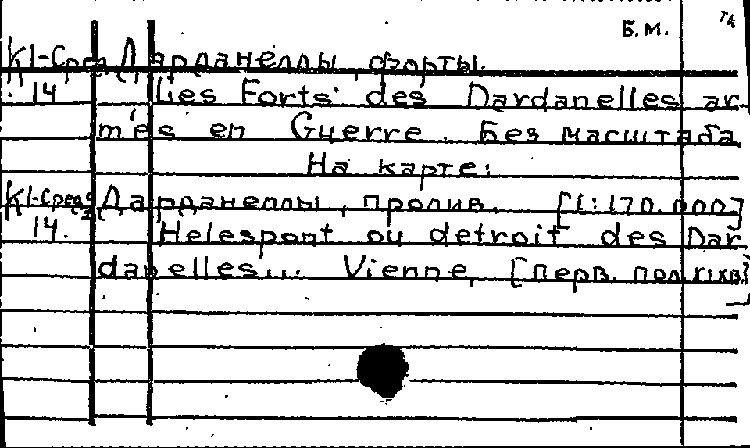 Б.М.
К1-Сред Дарданеллы, форты.
14 Les Forts des Dardanelles ar
més en Guerre. Без масштаба
На карте:
К1-Сред Дарданеллы, пролив. [1:170.000]
14. Helespont ou detroit des Dar
danelles... Vienne, [перв. пол. XIXв]